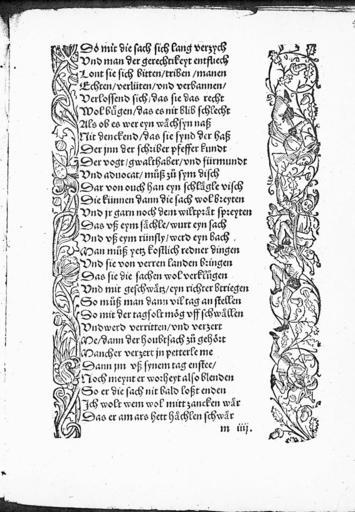 So mir die sach sich lang verzych
Vnd man der gerechtikeyt entfliech
Lont sie sich bitten/triben/manen
Echten/verlüten/vnd verbannen/
Verlossend sich/das sie das recht
Wol bügen/das es nit blib schlecht
Als ob es wer eyn wächsyn naß
Nit denckend/das sie synd der haß
Der jnn der schriber pfeffer kundt
Der vogt/gwalthaber/vnd fürmundt
Vnd aduocat/müß zü sym disch
Dar von ouch han eyn schlägle visch
Die künnen dann die sach wol breyten
Vnd jr garn noch dem wiltprät spreyten
Das vß eym sächle/wurt eyn sach
Vnd vß eym rünsly/werd eyn bach
Man müß yetz kostlich redner dingen
Vnd sie von verren landen bringen
Das sie die sachen wol verklügen
Vnd mit geschwätz/eyn richter btriegen
So müß man dann vil tag an stellen
So mit der tagsolt mög vff schwällen
Vnd werd verritten/vnd verzert
Me/dann der houbtsach zü gehört
Mancher verzert jn petterle me
Dann jm vß synem tag entstee/
Noch meynt er worheyt also blenden
So er die sach nit bald loßt enden
Ich wolt wem wol mitt zancken wär
Das er am ars hett hächlen schwär
m iiij.